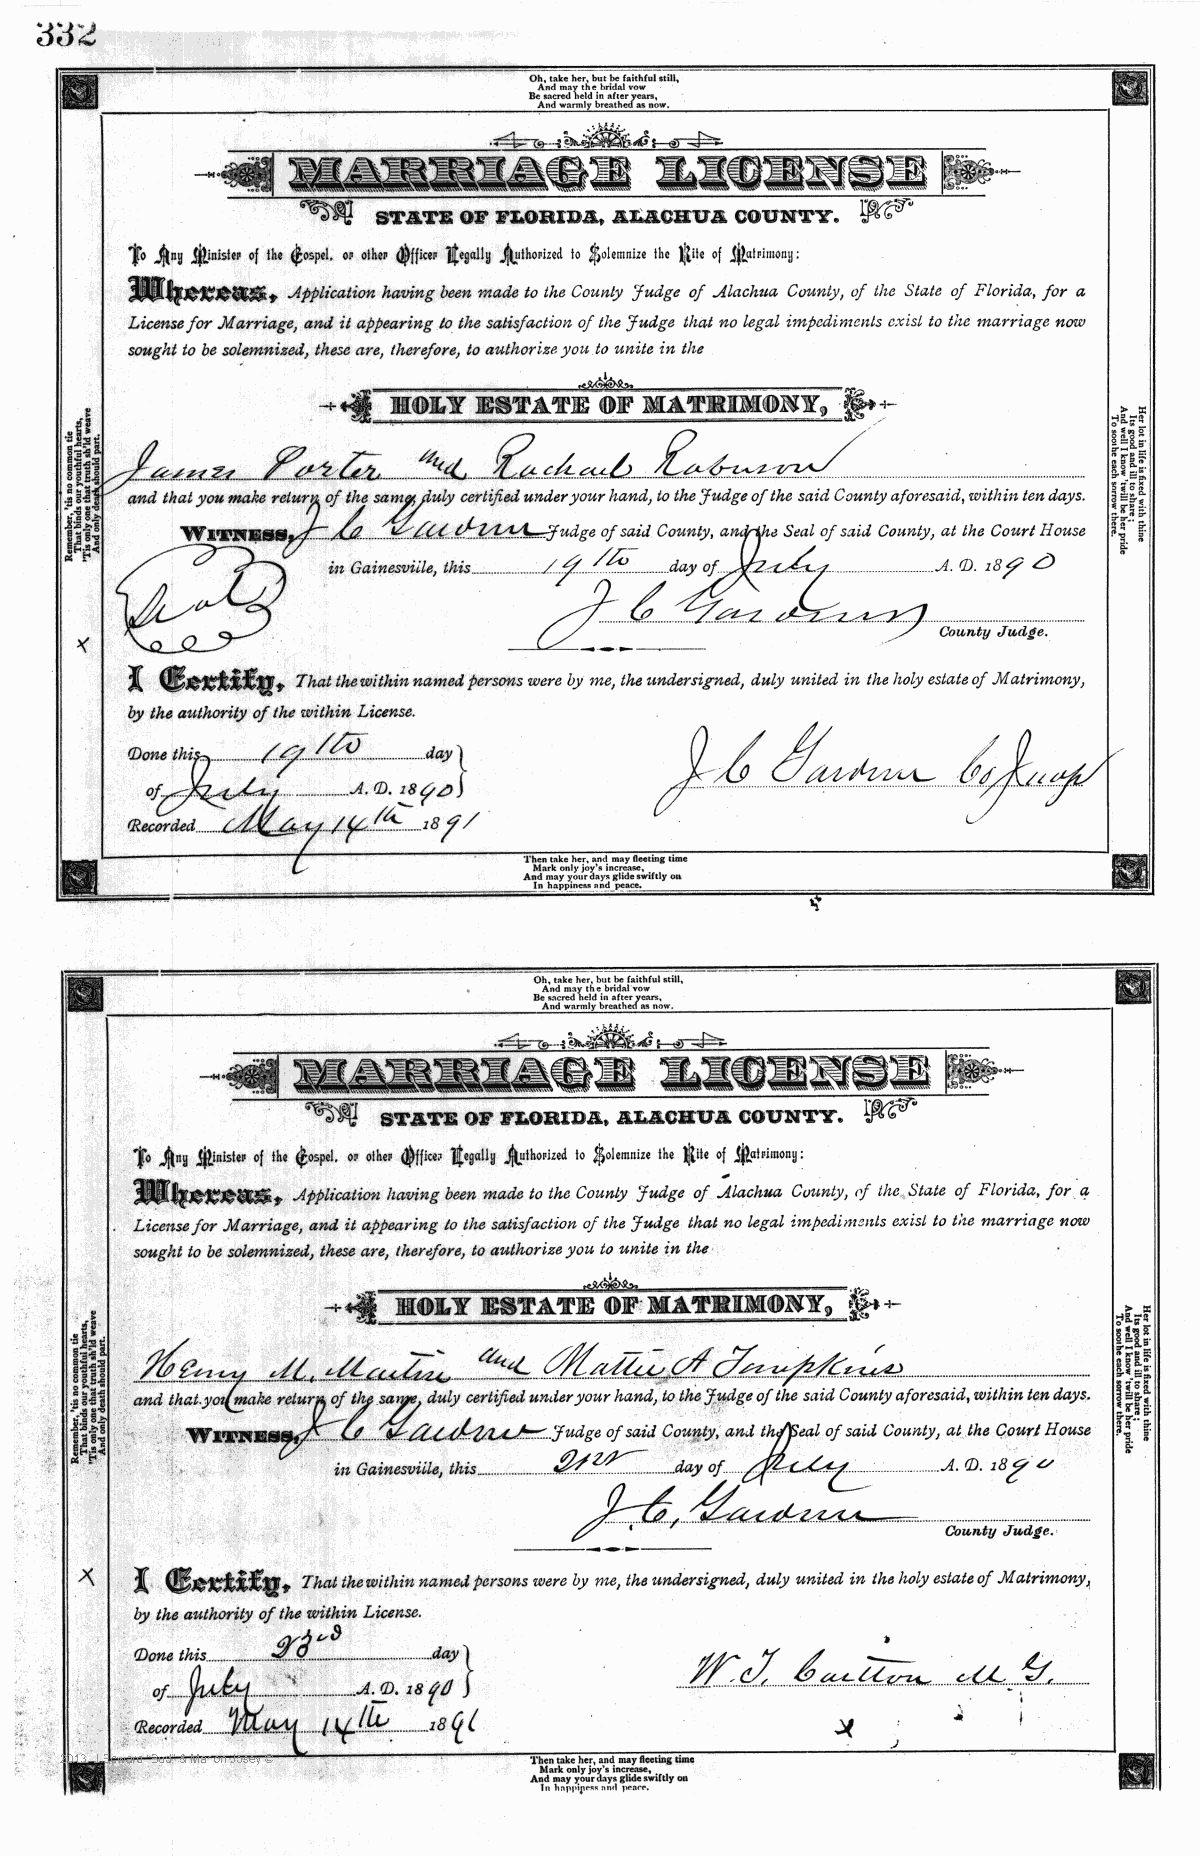 332
Oh, take her, but be faithful still,
And may the bridal vow
Be sacred held in after years,
And warmly breathed as now.
MARRIAGE LICENSE
STATE OF FLORIDA, ALACHUA COUNTY.
To Any Minister of the Gospel, or other Officer Legally Authorized to Solemnize the Rite of Matrimony:
Whereas, Application having been made to the County Judge of Alachua County, of the State of Florida, for a
License for Marriage, and it appearing to the satisfaction of the Judge that no legal impediments exist to the marriage now
sought to be solemnized, these are, therefore, to authorize you to unite in the
HOLY ESTATE OF MATRIMONY,
James Porter and Rachael Robinson
and that you make return of the same, duly certified under your hand, to the Judge of the said County aforesaid, within ten days.
WITNESS, J C Gardner Judge of said County, and the Seal of said County, at the Court House
in Gainesville, this 19th day of July A. D. 1890
Seal
J C Gardner
County Judge.
x
I Certify, That the within named persons were by me, the undersigned, duly united in the holy estate of Matrimony,
by the authority of the within License.
Done this 19th day
of July A. D. 1890
J C Gardner Co Judge
Recorded May 14th 1891
Remember, 'tis no common tie
That binds our youthful hearts,
'Tis only one that truth sh'ld weave
And only death should part.
Her lot in life is fixed with thine
Its good and ill to share;
And well I know 'twill be her pride
To soothe each sorrow there.
Then take her, and may fleeting time
Mark only joy's increase,
And may your days glide swiftly on
In happiness and peace.
Oh, take her, but be faithful still,
And may the bridal vow
Be sacred held in after years,
And warmly breathed as now.
MARRIAGE LICENSE
STATE OF FLORIDA, ALACHUA COUNTY.
To Any Minister of the Gospel, or other Officer Legally Authorized to Solemnize the Rite of Matrimony:
Whereas, Application having been made to the County Judge of Alachua County, of the State of Florida, for a
License for Marriage, and it appearing to the satisfaction of the Judge that no legal impediments exist to the marriage now
sought to be solemnized, these are, therefore, to authorize you to unite in the
HOLY ESTATE OF MATRIMONY,
Henry M. Martin and Mattie A Tompkins
and that you make return of the same, duly certified under your hand, to the Judge of the said County aforesaid, within ten days.
WITNESS, J C Gardner Judge of said County, and the Seal of said County, at the Court House
in Gainesville, this 21st day of July A. D. 1890
J. C. Gardner
County Judge.
x
I Certify, That the within named persons were by me, the undersigned, duly united in the holy estate of Matrimony,
by the authority of the within License.
Done this 23rd day
of July A. D. 1890
W. T. M. G.
Recorded May 14th 1891
x
Remember, 'tis no common tie
That binds our youthful hearts,
'Tis only one that truth sh'ld weave
And only death should part.
Her lot in life is fixed with thine
Its good and ill to share;
And well I know 'twill be her pride
To soothe each sorrow there.
Then take her, and may fleeting time
Mark only joy's increase,
And may your days glide swiftly on
In happiness and peace.